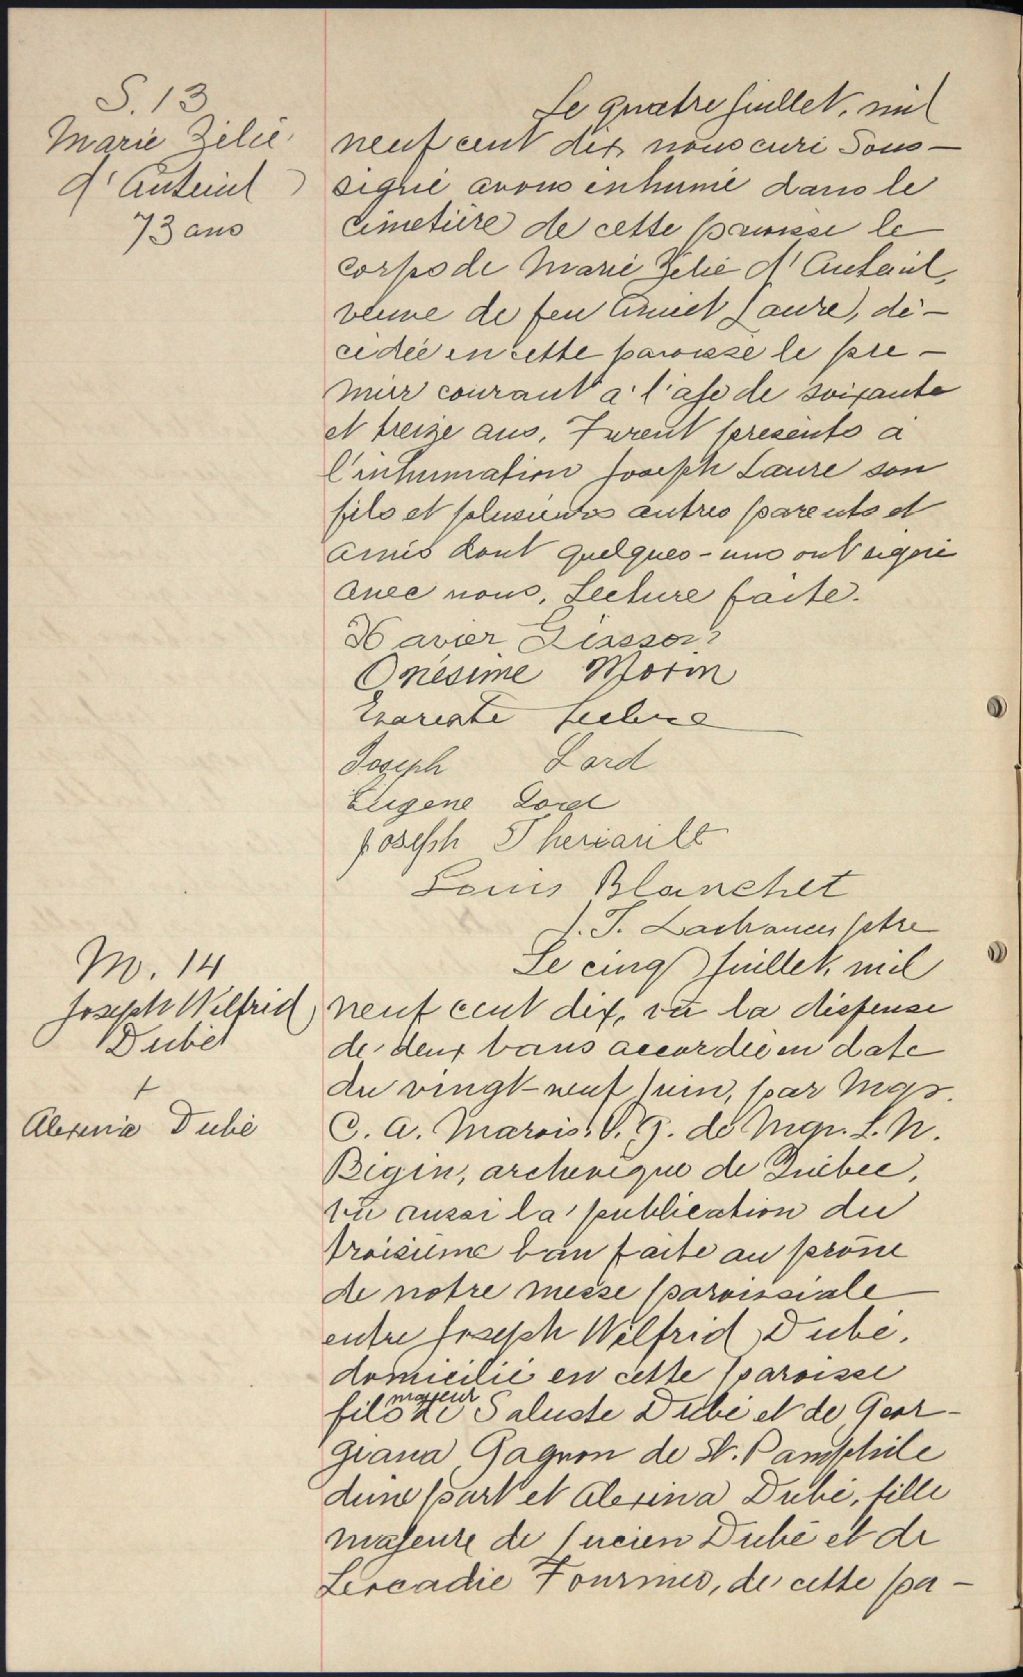 S. 13
Marie Zélie
d'Auteuil
73 ans
Le quatre juillet, mil
neuf cent dix, nous curé Sous-
signé avons inhumé dans le
cimetière de cette paroisse le
corps de Marie Zélie d'Auteuil,
veuve de feu Laure, dé-
cédée en cette paroisse le pre-
mier courant à l'age de soixante
et treize ans. Furent présents à
l'inhumation Joseph Laure son
fils et plusieurs autres parents et
amis dont quelques-uns ont signé
avec nous. Lecture faite.
Xavier Giasson
Onésime Morin
Evariste Leclerc
Joseph Lord
Eugene Lord
Joseph Theriault
Louis Blanchet
J. T. ptre
M. 14
Joseph Wilfrid
Dubé
+
Alexina Dubé
Le cinq juillet, mil
neuf cent dix, vû la dispense
de deux bans accordée en date
du vingt-neuf juin, par Mgr.
C. A. Marois, V. G. de Mgr. L. N.
Bégin, archevêque de Québec,
vû aussi la publication du
troisième ban faite au prône
de notre messe paroissiale
entre Joseph Wilfrid Dubé,
domicilié en cette paroisse
fils majeur de Saluste Dubé et de Geor-
giana Gagnon de St. Pamphile
d'une part et Alexina Dubé, fille
majeure de Lucien Dubé et de
Léocadie Fournier, de cette pa-